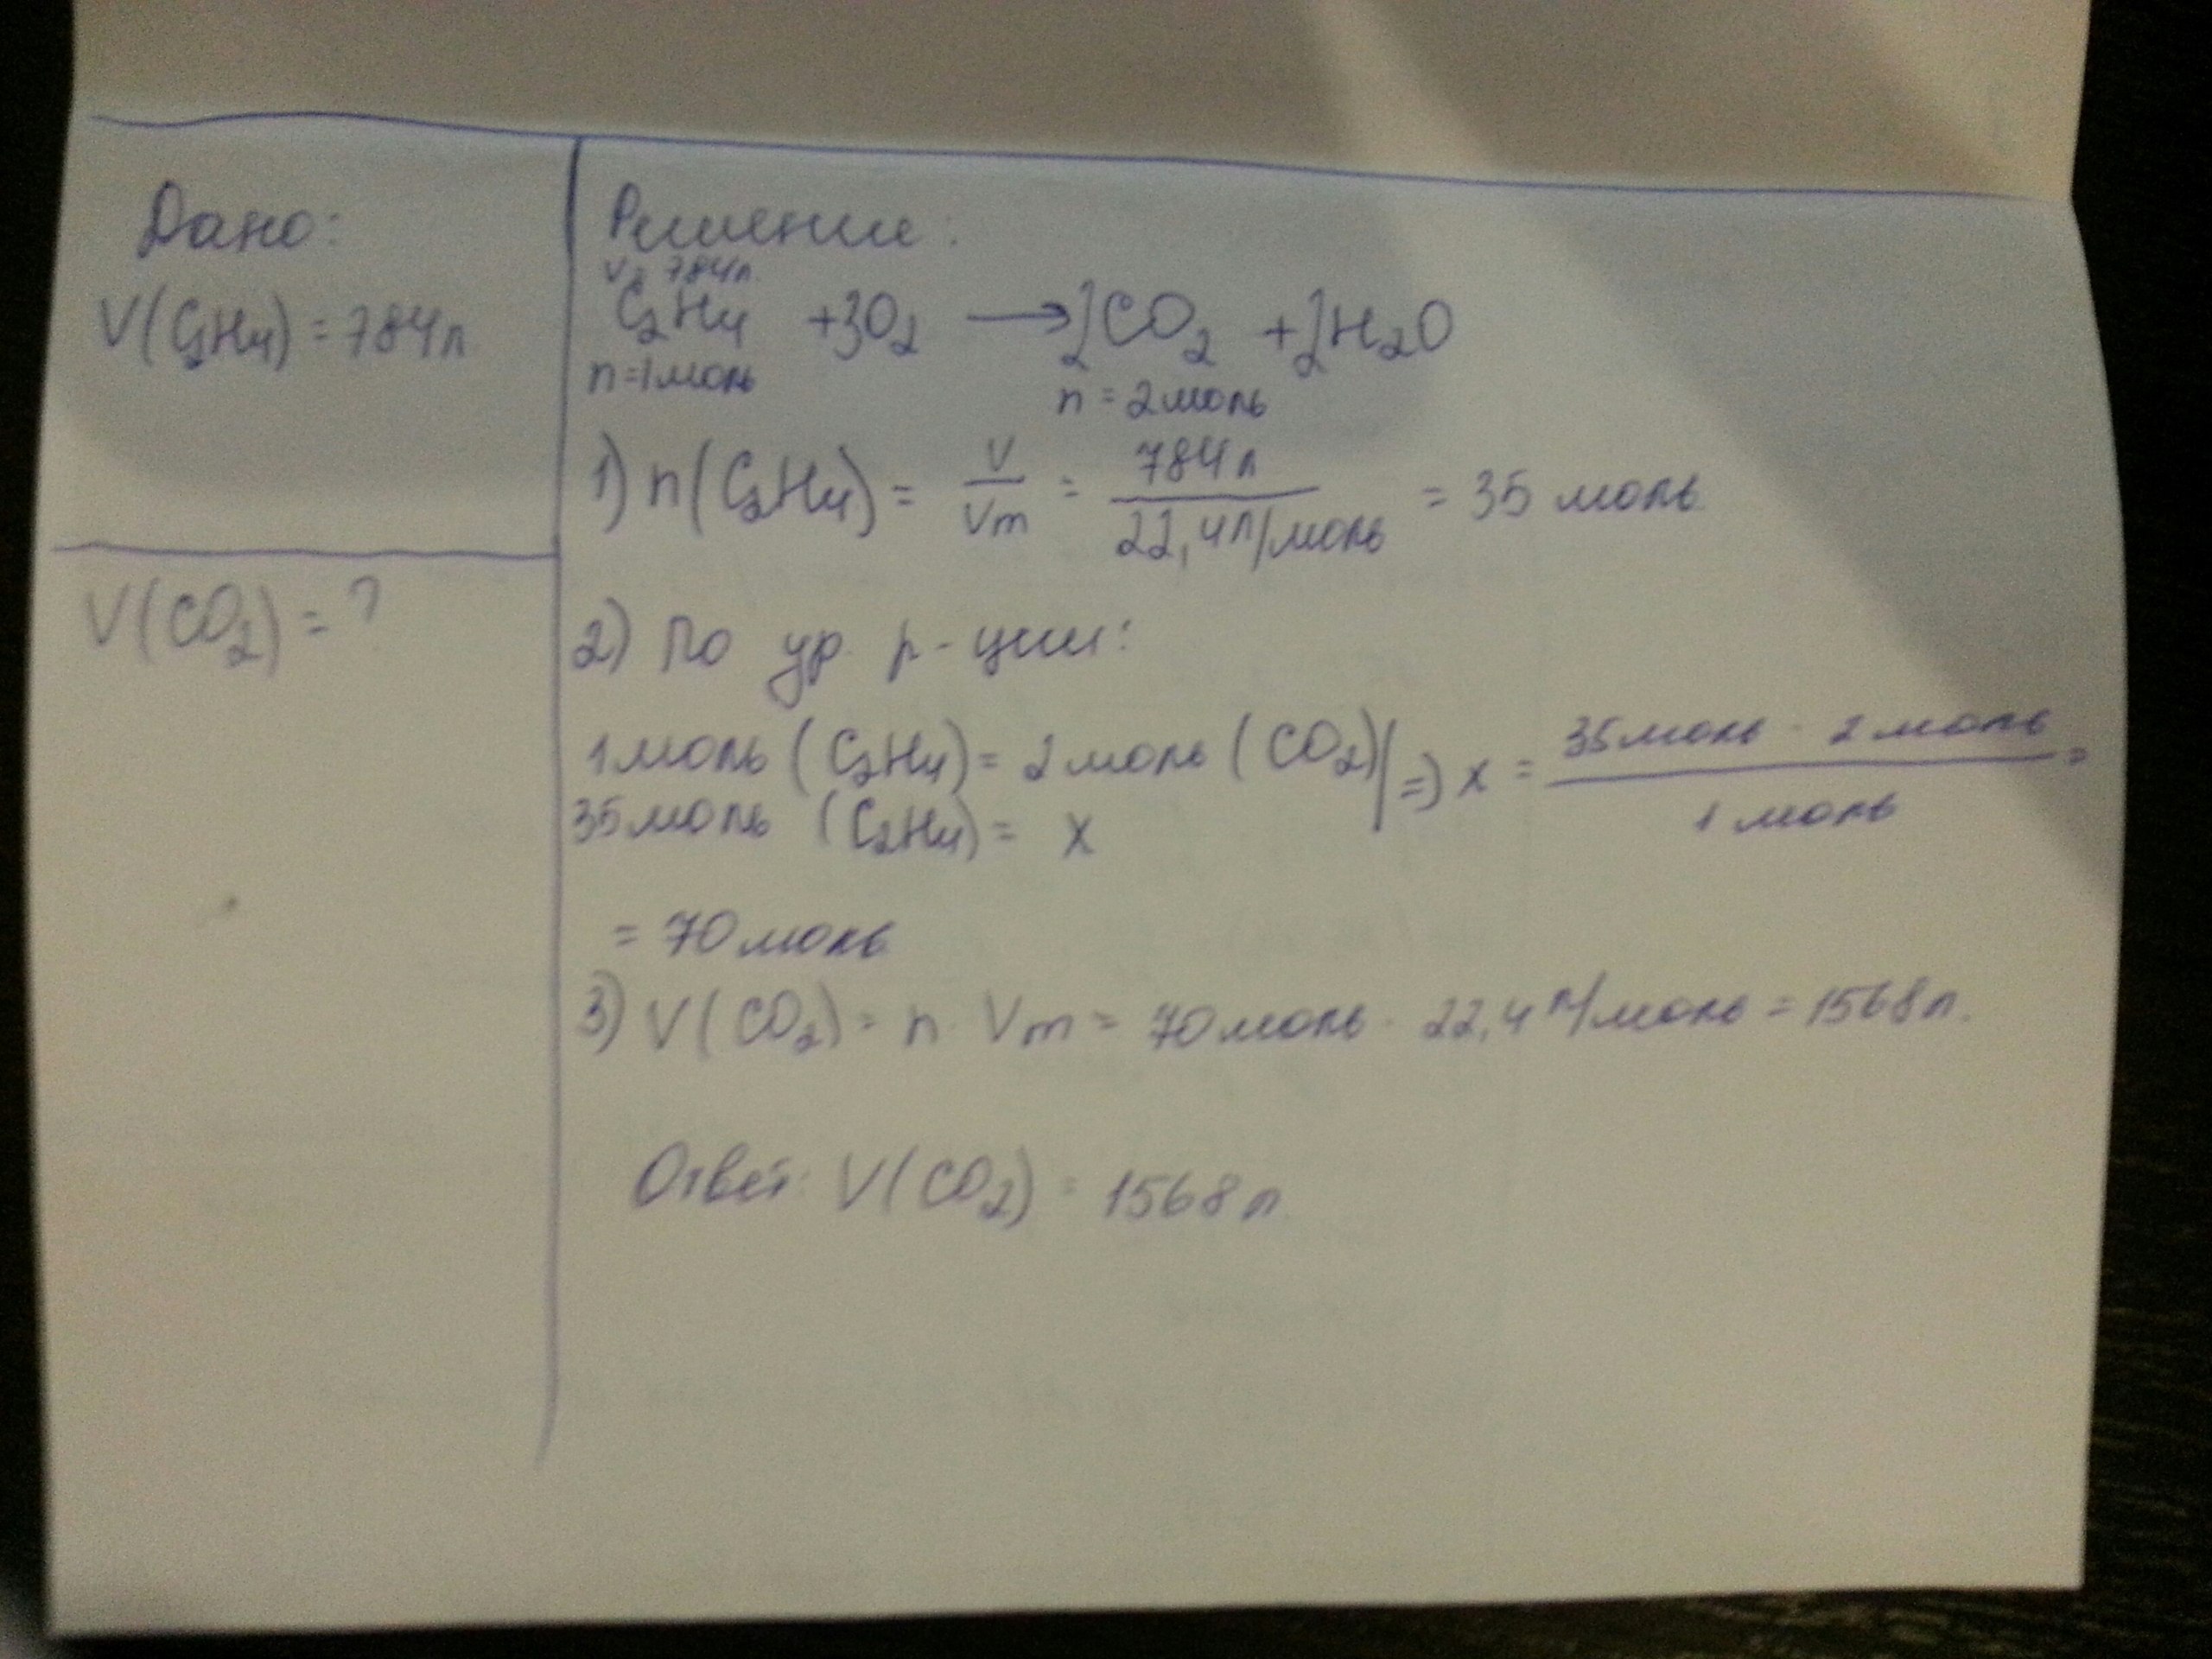 Дано:
V(C₂H₄) = 784л
V(CO₂) = ?
Решение:
V = 784л.
C₂H₄ + 3O₂ → 2CO₂ + 2H₂O
n = 1моль
n = 2моль
1) n(C₂H₄) = V/Vm = 784л/22,4л/моль = 35 моль.
2) По ур. р-ции:
1моль (C₂H₄) = 2моль (CO₂) | => x = 35моль · 2моль / 1моль =
35моль (C₂H₄) = x
= 70моль
3) V(CO₂) = n · Vm = 70моль · 22,4л/моль = 1568л.
Ответ: V(CO₂) = 1568л